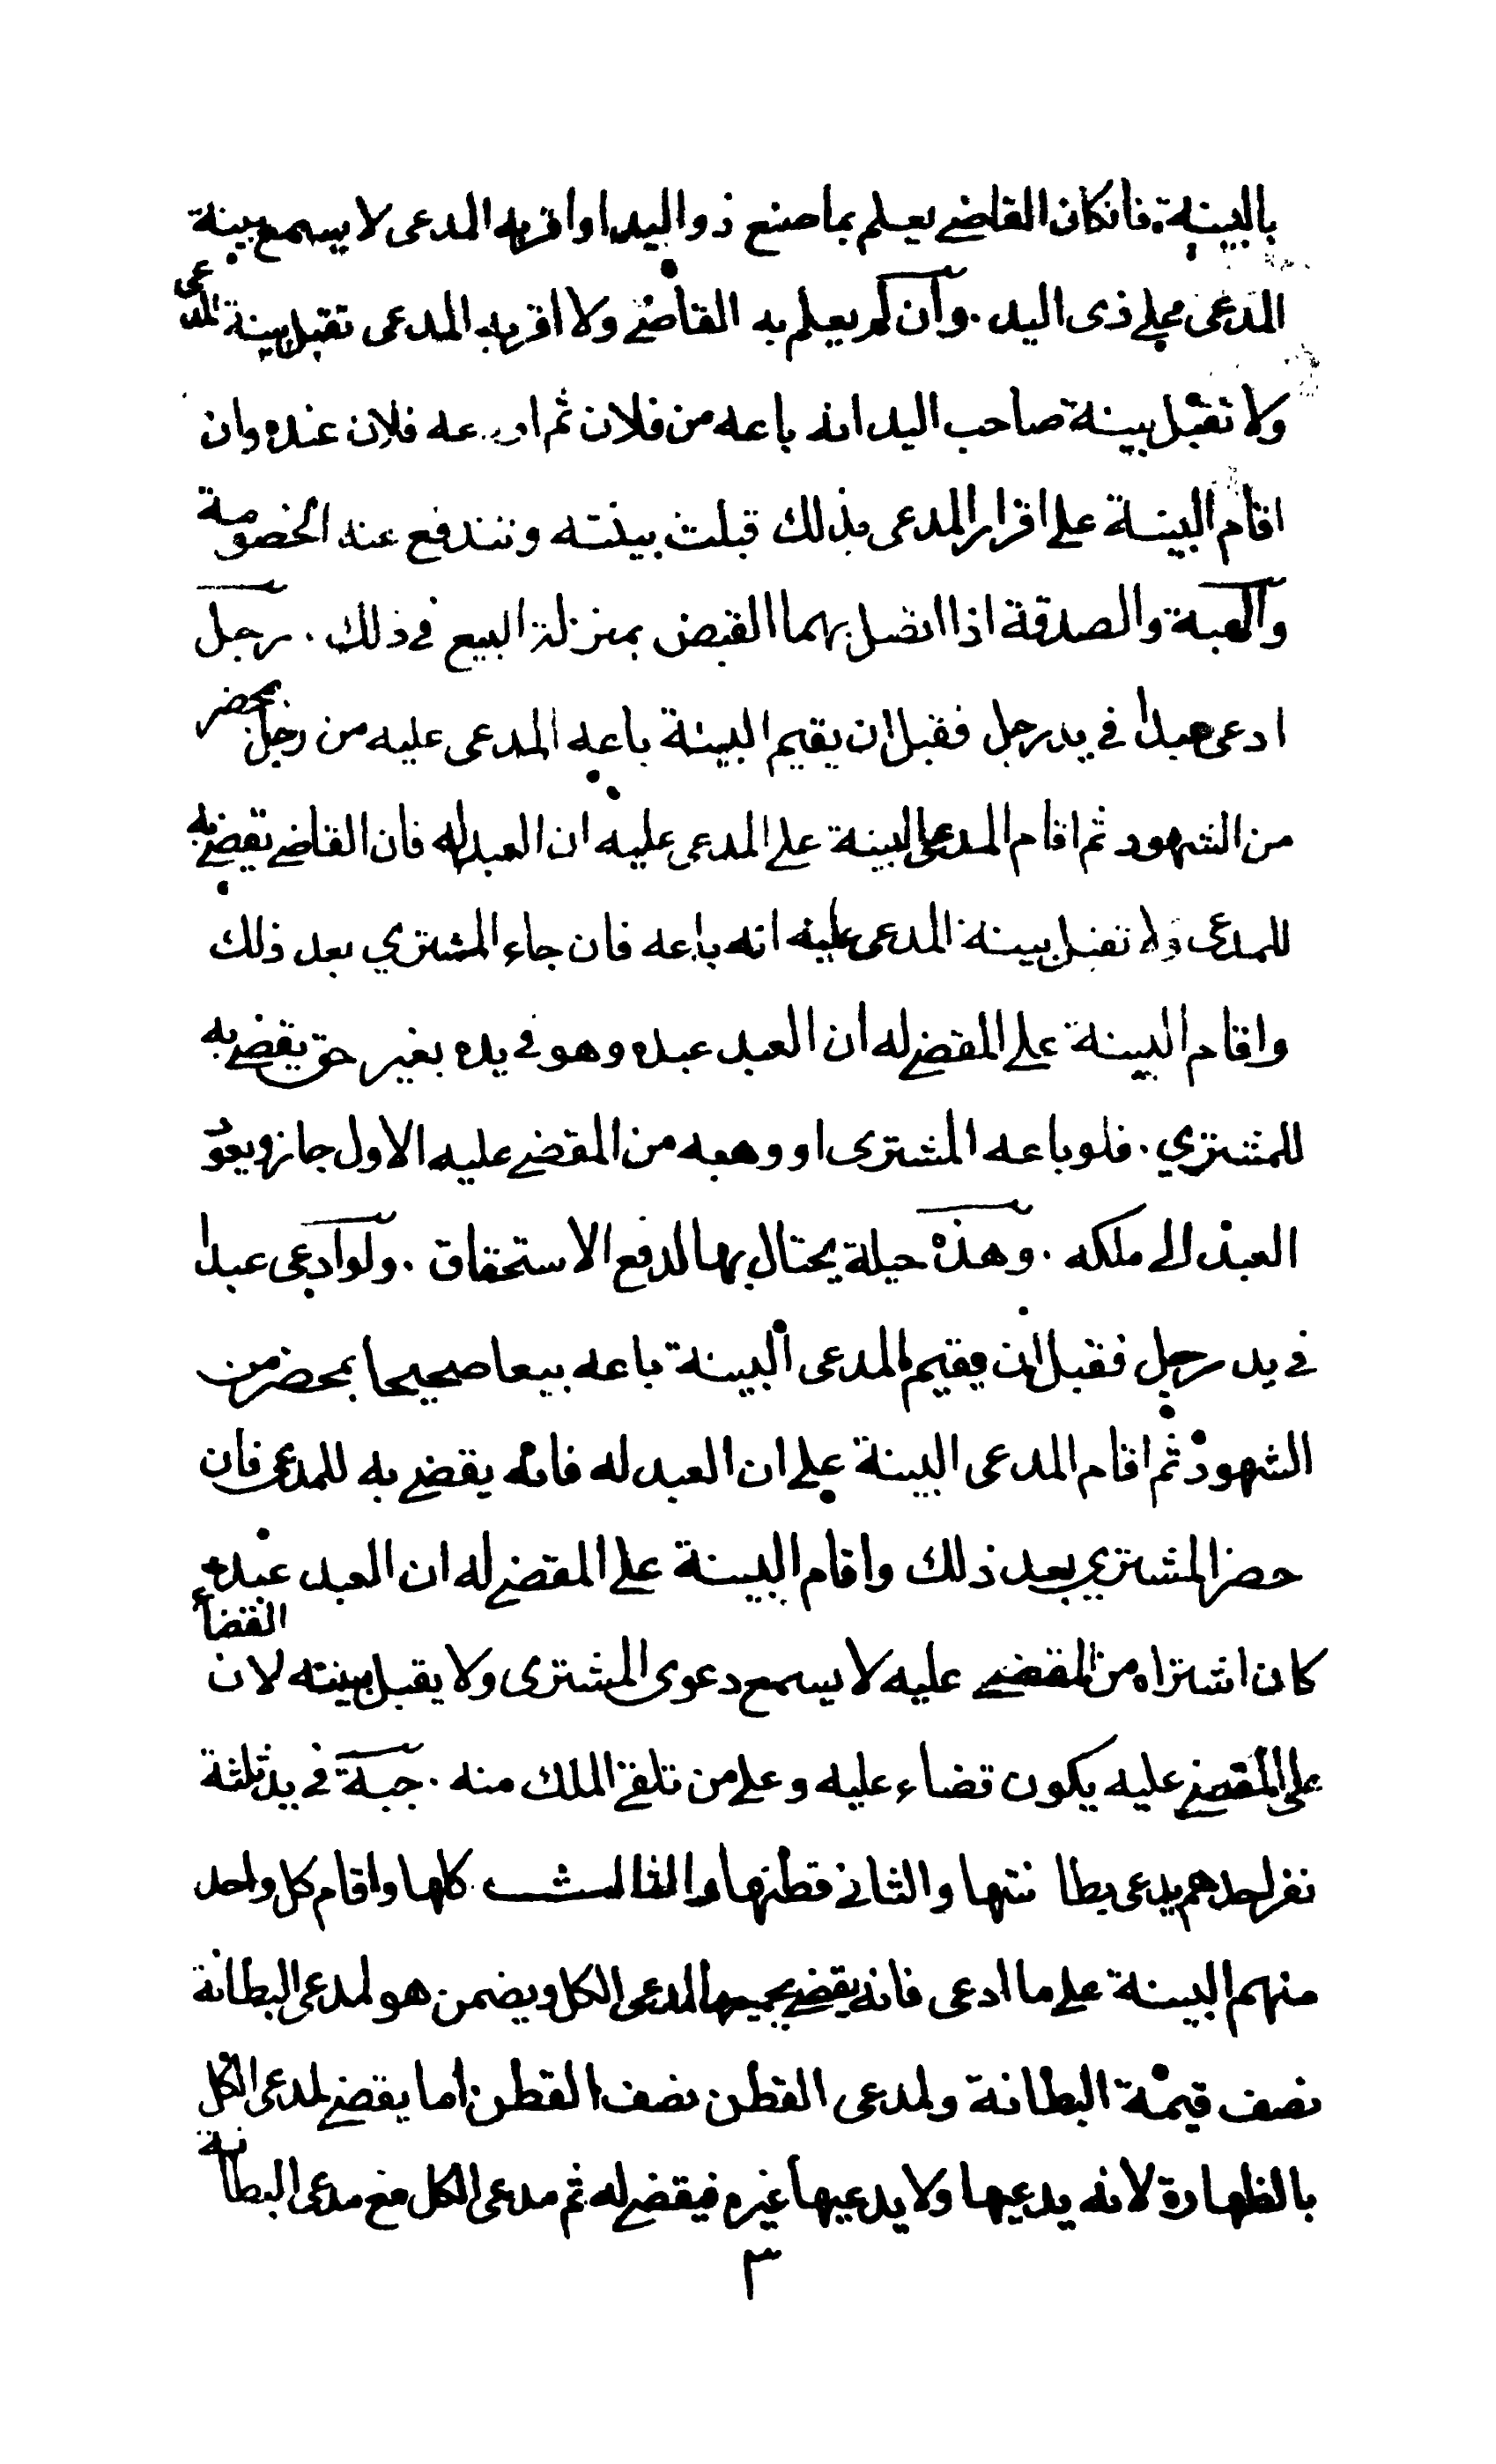 بالبينة. فانكان القاضى يعلم بما صنع ذو اليد او اقر به المدعى لا يسمع بينة
المدعى على ذى اليد . وان لم يعلم به القاضى ولا اقر به المدعى تقبل بينة المدعى
ولا تقبل بينة صاحب اليد انه باعه من فلان ثم اودعه فلان عنده وان
اقام البينة على اقرار المدعى بذلك قبلت بينته وتندفع عنه الخصومة
والهبة والصدقة اذا اتصل بهما القبض بمنزلة البيع في ذلك . رجل
ادعى عبدا في يد رجل فقبل ان يقيم البينة باعه المدعى عليه من رجل بمحضر
من الشهود ثم اقام المدعى البينة على المدعى عليه ان العبد له فان القاضى يقضى به
للمدعى ولا تقبل بينة المدعى عليه انه باعه فان جاء المشتري بعد ذلك
واقام البينة على المقضى له ان العبد عبده وهو في يده بغير حق يقضى به
للمشتري . فلو باعه المشترى او وهبه من المقضى عليه الاول جاز ويعود
العبد الى ملكه . وهذه حيلة يحتال بها لدفع الاستحقاق . ولو ادعى عبدا
في يد رجل فقبل ان يقيم المدعى البينة باعه بيعا صحيحا بمحضر من
الشهود ثم اقام المدعى البينة على ان العبد له فانه يقضى به للمدعى فان
حضر المشتري بعد ذلك واقام البينة على المقضى له ان العبد عبده
كان اشتراه من المقضى عليه لا يسمع دعوى المشترى ولا يقبل بينته لان القضاء
على المقضى عليه يكون قضاء عليه وعلى من تلقى الملك منه . جبة في يد ثلثة
نفر احدهم يدعى بطانتها والثانى قطنها والثالث كلها واقام كل واحد
منهم البينة على ما ادعى فانه يقضى بجميعها لمدعى الكل ويضمن هو لمدعى البطانة
نصف قيمة البطانة ولمدعى القطن نصف القطن اما يقضى لمدعى الكل
بالظهارة لانه يدعيها ولا يدعيها غيره فيقضى له ثم مدعى الكل مع مدعى البطانة
٣